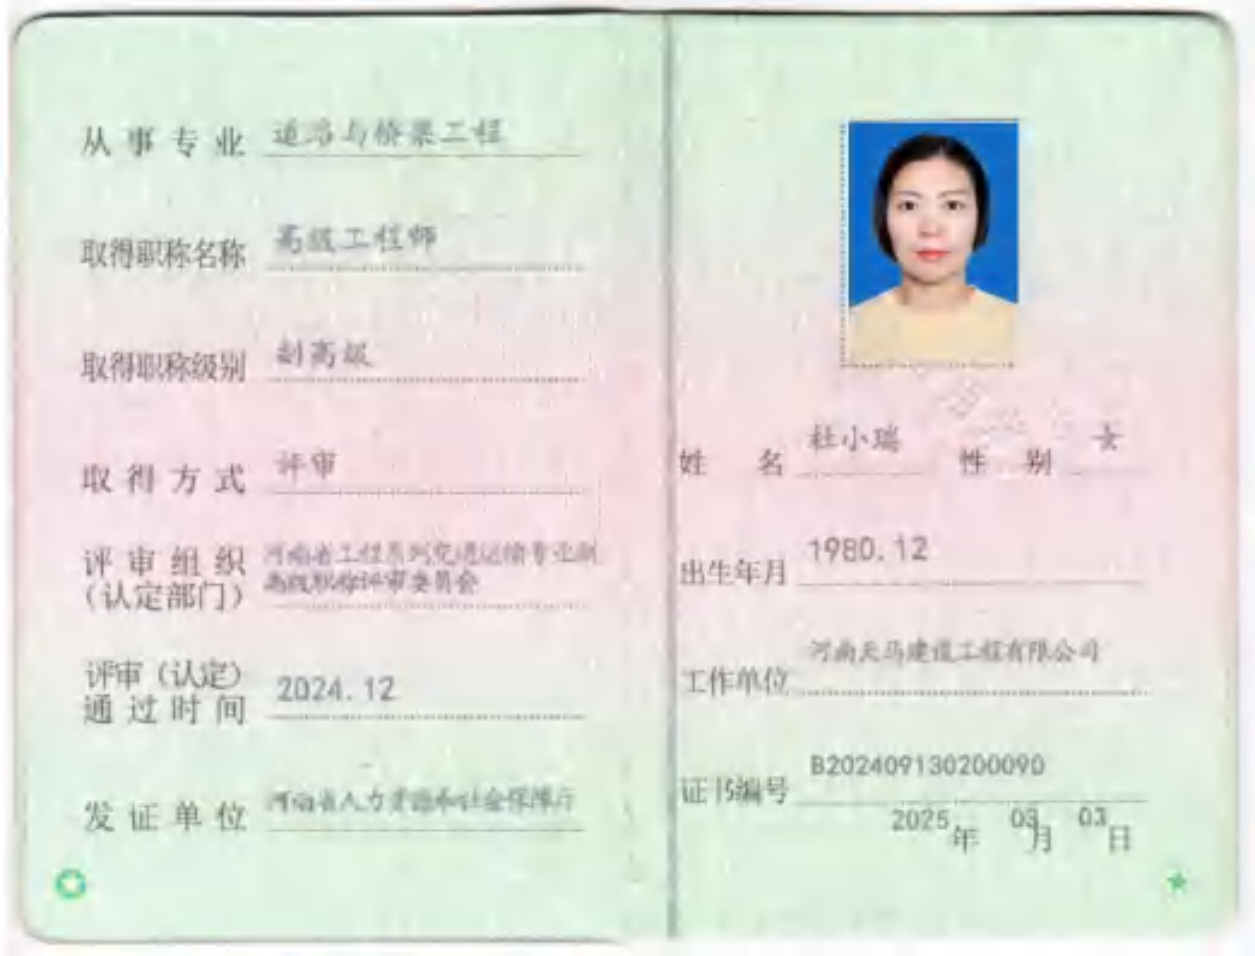 从事专业 道路与桥梁工程
取得职称名称 高级工程师
取得职称级别 副高级
取得方式 评审
评审组织 河南省工程系列交通运输专业副
(认定部门) 高级职称评审委员会
评审(认定)
通过时间 2024.12
发证单位 河南省人力资源和社会保障厅
姓名 杜小瑞 性别 女
出生年月 1980.12
工作单位 河南天马建设工程有限公司
证书编号 B202409130200090
2025年 03月 03日